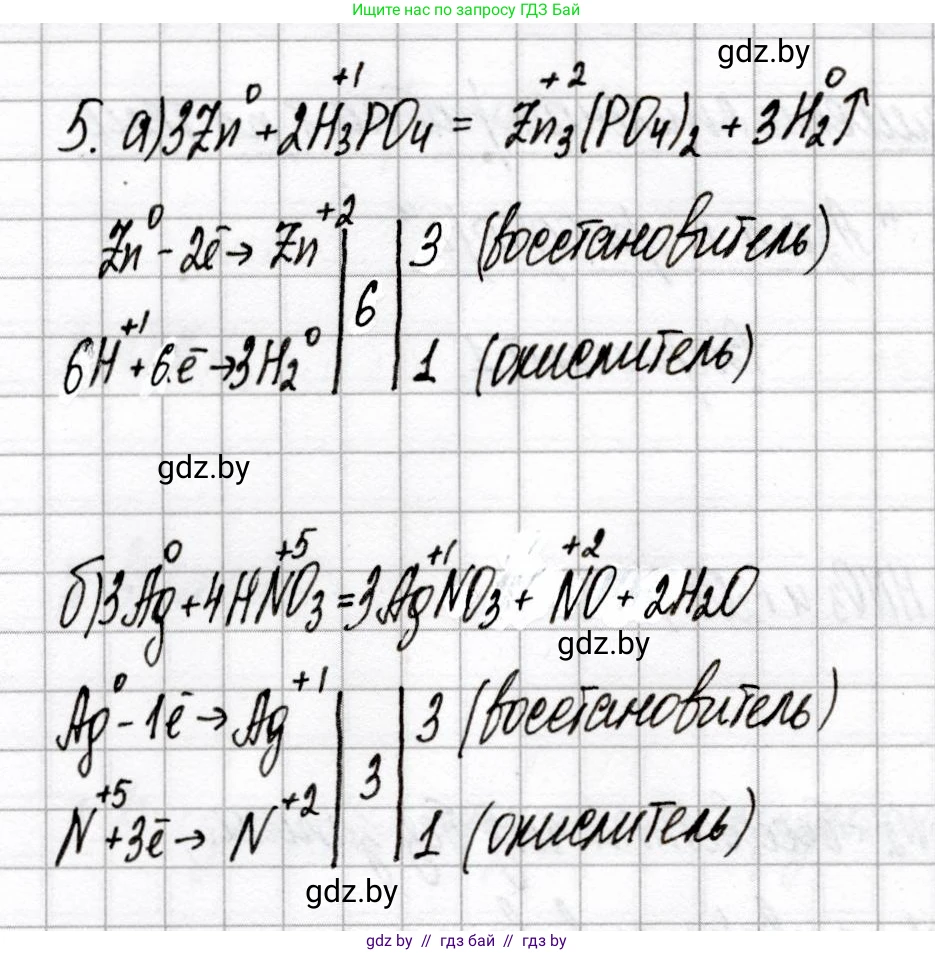 Ищите нас по запросу ГДЗ Бай
gdz.by
5. а) 3Zn⁰ + 2H₃⁺¹PO₄ = Zn₃⁺²(PO₄)₂ + 3H₂⁰↑
Zn⁰ - 2ē → Zn⁺² | | 3 (восстановитель)
6
6H⁺¹ + 6ē → 3H₂⁰ | | 1 (окислитель)
gdz.by
б) 3Ag⁰ + 4HN⁺⁵O₃ = 3Ag⁺¹NO₃ + N⁺²O + 2H₂O
gdz.by
Ag⁰ - 1ē → Ag⁺¹ | | 3 (восстановитель)
3
N⁺⁵ + 3ē → N⁺² | | 1 (окислитель)
gdz.by
gdz by // гдз бай // gdz by